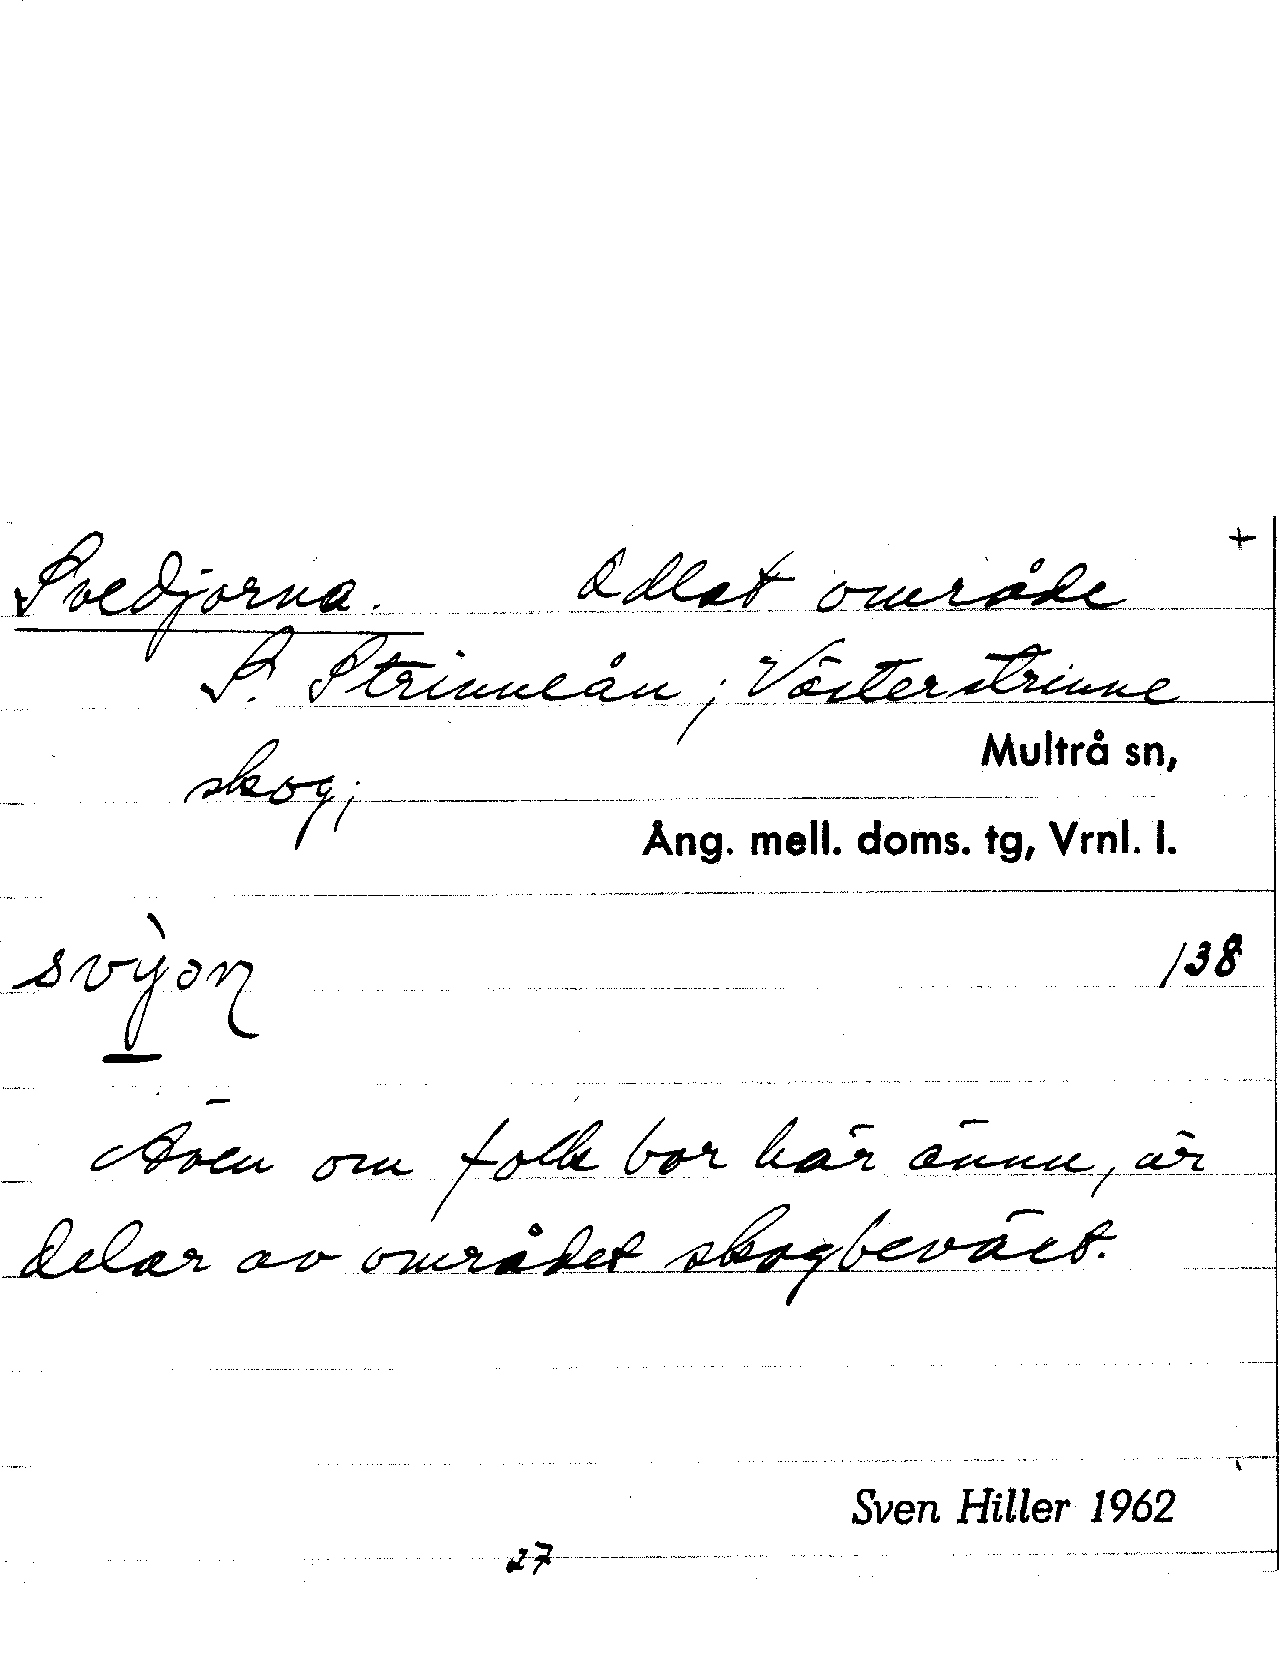 +
Svedjorna. Odlat område
S. Strinneån; Västerstrinne
Multrå sn,
skog;
Ång. mell. doms. tg, Vrnl. l.
138
Även om folk bor här ännu, är
delar av området skogbeväxt.
Sven Hiller 1962
27